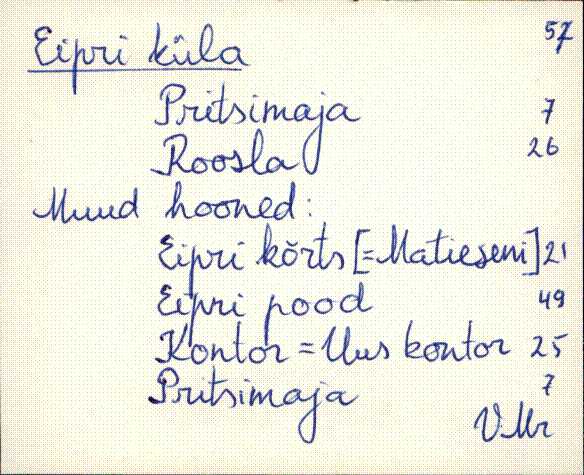 Eipri küla 57
Pritsimaja 7
Roosla 26
Muud hooned:
Eipri kõrts [=Matieseni] 21
Eipri pood 49
Kontor = Uus kontor 25
Pritsimaja 7
VMr